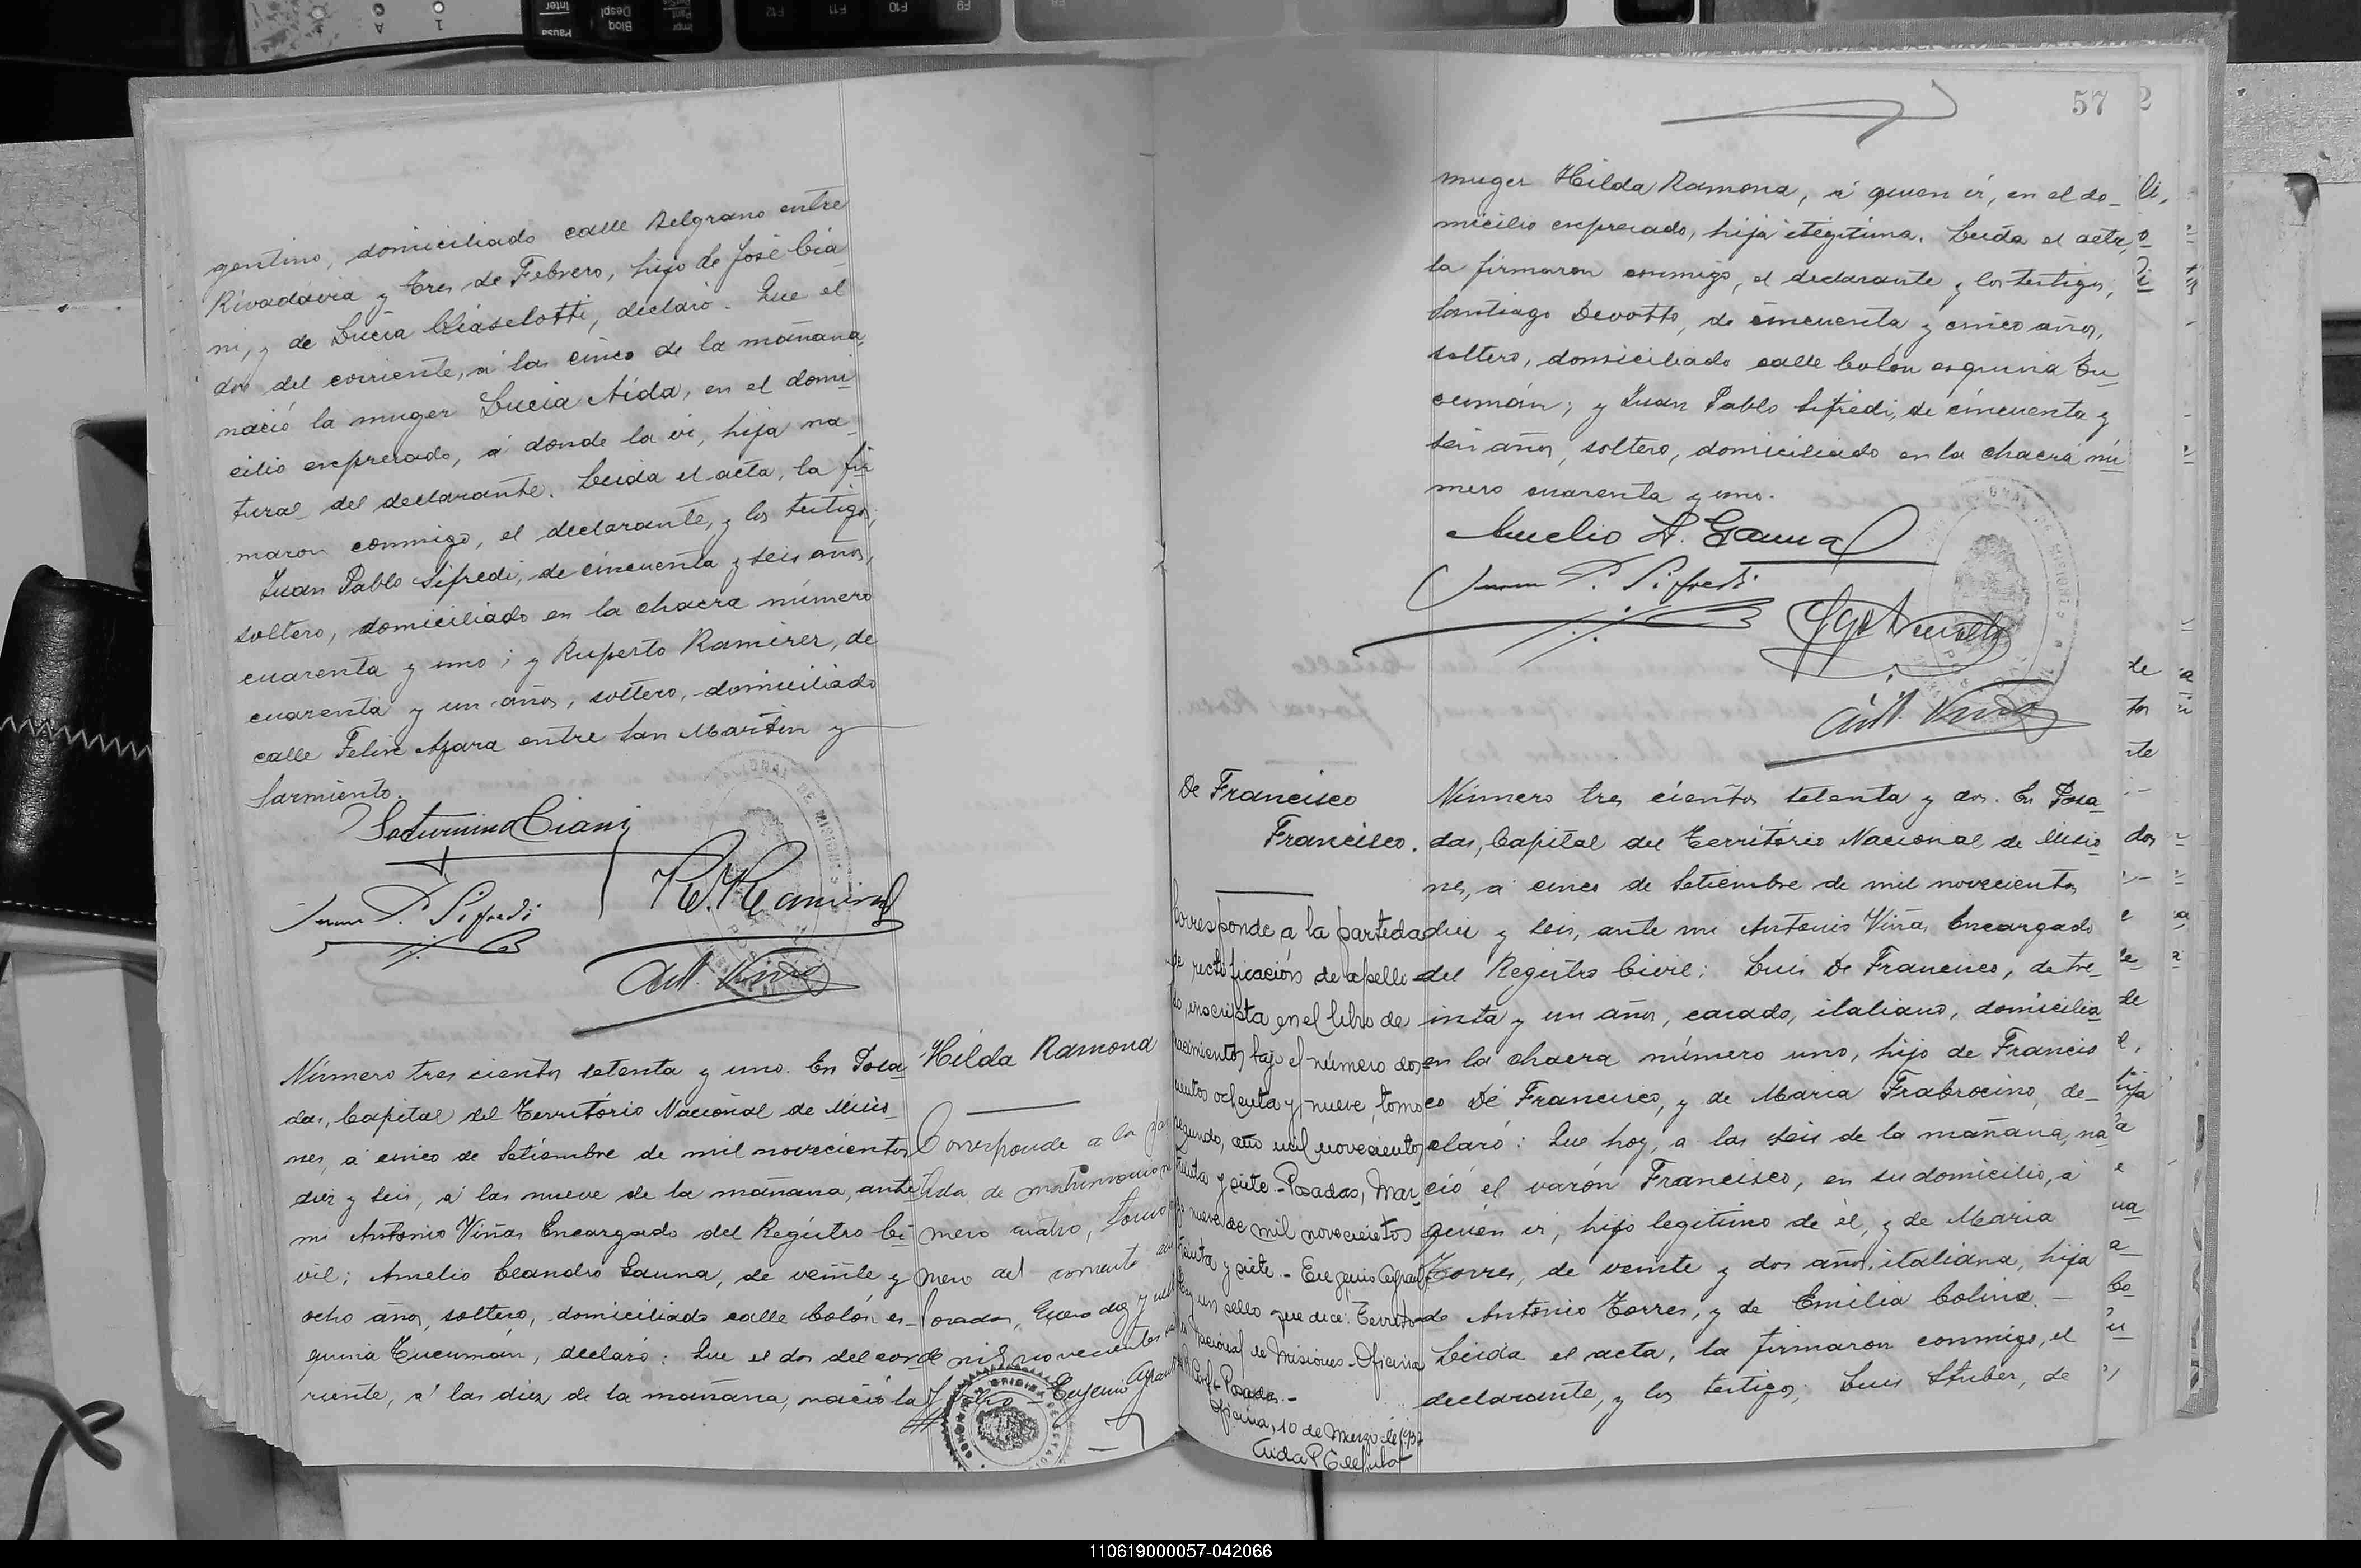 gentino, domiciliado calle Belgrano entre
Rivadavia y Tres de Febrero, hijo de José Cia
ni, y de Lucia declaró. Que el
dos del corriente, á las cinco de la mañana
nació la muger Lucia Aída, en el domi
cilio expresado, á donde la vi, hija na
tural del declarante. Leida el acta, la fir
maron conmigo, el declarante, y los testigos,
Juan Pablo Sifredi, de cincuenta y seis años,
soltero, domiciliado en la chacra número
cuarenta y uno; y Ruperto Ramirez, de
cuarenta y un años, soltero, domiciliado
calle Felix Azara entre San Martin y
Sarmiento.
Saturnino Ciani
Juan P. Sifredi
R. Ramirez
Ant. Viñas
Número tres cientos setenta y uno. En Posa
das, Capital del Território Nacional de Misio
nes, á cinco de Setiembre de mil novecientos
diez y seis, á las nueve de la mañana, ante
mi Antonio Viñas Encargado del Registro Ci
vil; Amelio Leandro Gauna, de veinte y
ocho años, soltero, domiciliado calle Colón es-
quina Tucumán, declaró: Que el dos del cor
riente, á las diez de la mañana, nació la
Hilda Ramona
Corresponde a la par
tida de matrimonio
mero cuatro, tomo
mero del corriente
Posadas, Enero diez y
de mil novecientos
Eugenio
57
muger Hilda Ramona, á quien ví, en el do-
micilio expresado, hija ilegitima. Leida el acta,
la firmaron conmigo, el declarante y los testigos,
Santiago Devotto, de cincuenta y cinco años,
soltero, domiciliado calle Colón esquina Tu
cumán; y Juan Pablo Sifredi, de cincuenta y
seis años, soltero, domiciliado en la chacra nú
mero cuarenta y uno.
Amelio L. Gauna
Juan P. Sifredi
Ant. Viñas
De Francisco
Francisco.
Corresponde a la partida
de rectificación de apelli-
do, inscripta en el libro de
nacimientos bajo el número dos-
cientos ochenta y nueve, tomo
segundo, año mil novecientos
treinta y siete.- Posadas, Mar-
zo nueve de mil novecientos
treinta y siete.- Eugenio
Hay un sello que dice: Territo-
rio Nacional de Misiones - Oficina
Posadas.-
Oficina, 10 de Marzo de 1937
Número tres cientos setenta y dos. En Posa
das, Capital del Território Nacional de Misio
nes, á cinco de Setiembre de mil novecientos
diez y seis, ante mi Antonio Viñas Encargado
del Registro Civil: Luis De Francisco, de tre-
inta y un años, casado, italiano, domicilia
en la chacra número uno, hijo de Francis
co De Francisco, y de Maria Frabrocino, de-
claró: Que hoy, a las seis de la mañana, na
ció el varón Francisco, en su domicilio, á
quién ví, hijo legitimo de él, y de Maria
Torres, de veinte y dos años, italiana, hija
de Antonio Torres, y de Emilia Colina.
Leida el acta, la firmaron conmigo, el
declarante, y los testigos; Luis Stuber, de
110619000057-042066